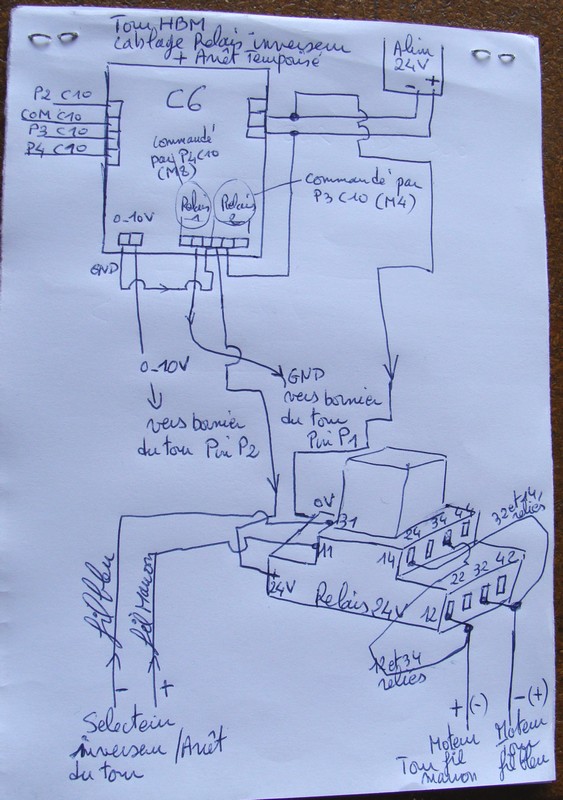 Tour HBM
Cablage Relais inverseur
+ Arrêt Temporisé
Alim
24V
- +
P2 C10
COM C10
P3 C10
P4 C10
C6
commandé
par P4 C10
(M8)
Relais
1
Relais
2
commandé par
P3 C10 (M4)
0_10V
GND
0_10V
vers bornier
du tour Pin P2
GND
vers bornier
du tour
Pin P1
0V
31
11
24V
+
14
24 34 44
32 et 14
reliés
12
22 32 42
Relais 24V
12 et 34
reliés
fil bleu
fil Maron
- +
Selecteur
inverseur /Arrêt
du tour
+ (-)
Moteur
Tour fil
maron
- (+)
Moteur
Tour
fil bleu